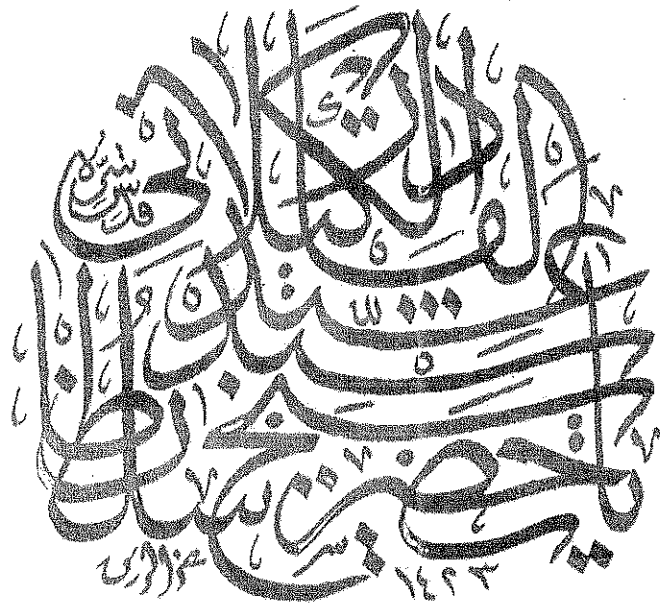 يا حضرت شيخ سلطان
سيد عبد القادر الكيلاني
قدس سره
١٤٢٣